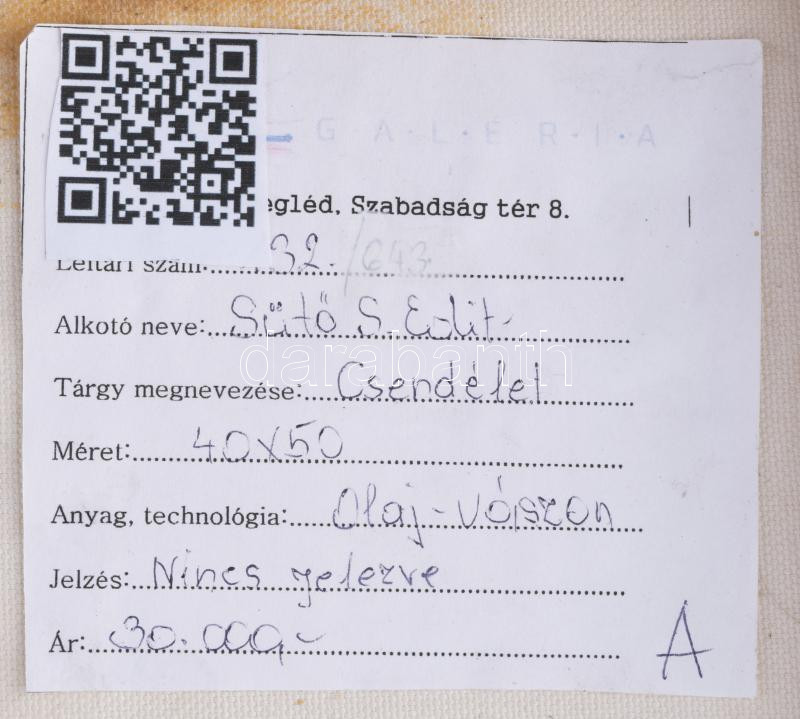 G·A·L·É·R·I·A
egléd, Szabadság tér 8.
Leltári szám: 32./643.
Alkotó neve: Sütő S. Edit
Tárgy megnevezése: Csendélet
Méret: 40x50
Anyag, technológia: Olaj-vászon
Jelzés: Nincs jelezve
Ár: 30.000,-
A
darabanth